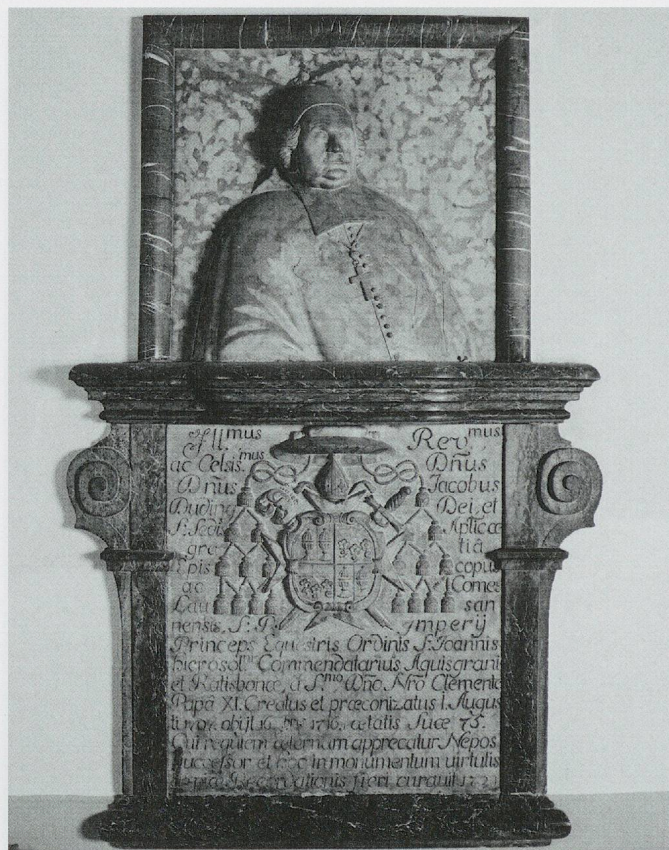 Ill.mus Rev.mus
ac Celsis.mus Dñus
Dñus Jacobus
Duding Dei, et
S: Sedis Aplicæ
gra tiâ
Epis copus
ac Comes
Lau san
nensis, S: R: Imperij
Princeps Equestris Ordinis S: Joannis
hierosol: Commendatarius Aquisgrani
et Ratisbonæ, á S.mo Dño Nro Clemente
Papâ XI. Creatus et præconizatus 1. Augus
ti, obijt 16. 1716, ætatis Suæ 75.
Cui requiem æternam apprecatur Nepos
Successor et hoc in monumentum virtutis
fieri curauit